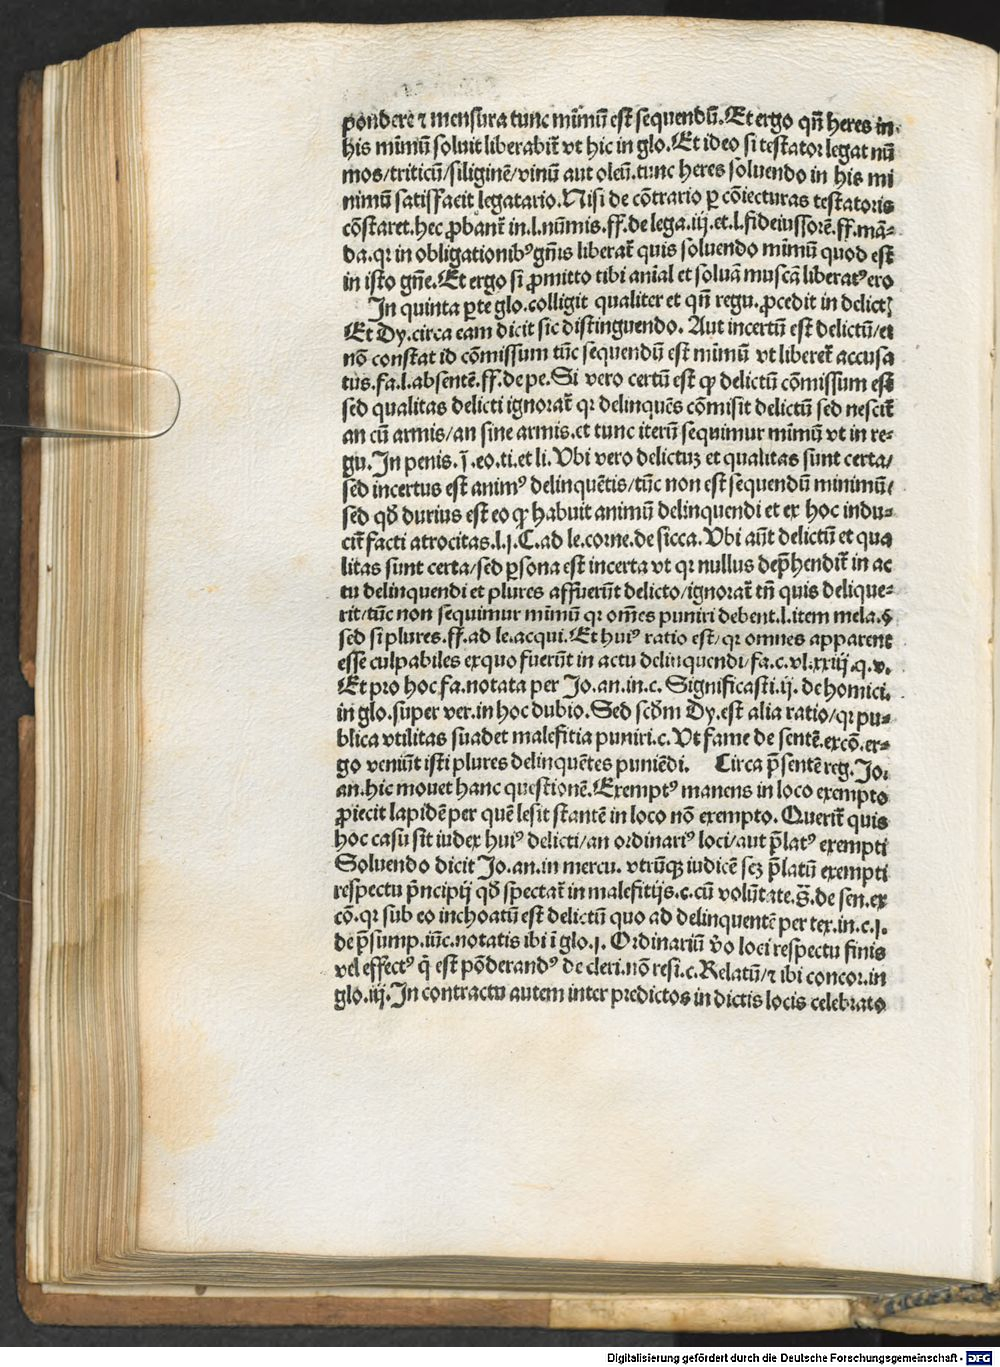 pondere ⁊ mensura tunc mīmū est sequendū. Et ergo qn̄ heres in
his mīmū soluit liberabit᷑ vt hic in glo. Et ideo si testator legat nū
mos/triticū/siliginē/vinū aut oleū.tunc heres soluendo in his mi
nimū satisfacit legatario. Nisi de cōtrario ꝑ cōiecturas testatoris
cōstaret. hec ꝓbant᷑ in.l.nūmis.ff.de lega.iij.et.l.fideiussorē.ff.mā⸗
da.qꝛ in obligationibꝰ gn̄is liberat᷑ quis soluendo mīmū quod est
in isto gn̄e. Et ergo si ꝓmitto tibi anīal et soluā muscā liberatꝰ ero
In quinta ꝑte glo.colligit qualiter et qn̄ regu.ꝓcedit in delictꝭ
Et Dy.circa eam dicit sic distinguendo. Aut incertū est delictū/et
nō constat id cōmissum tūc sequendū est mīmū vt liberet᷑ accusa
tus.fa.l.absentē.ff.de pe. Si vero certū est ꝙ delictū cōmissum est
sed qualitas delicti ignorat᷑ qꝛ delinquēs cōmisit delictū sed nescit᷑
an cū armis/an sine armis.et tunc iterū sequimur mīmū vt in re⸗
gu. In penis. j̄.eo.ti.et li. Vbi vero delictuꝫ et qualitas sunt certa/
sed incertus est animꝰ delinquētis/tūc non est sequendū minimū/
sed qḋ durius est eo ꝙ habuit animū delinquendi et ex hoc indu⸗
cit᷑ facti atrocitas.l.j.C.ad le.corne.de sicca. Vbi aūt delictū et qua
litas sunt certa/sed ꝑsona est incerta vt qꝛ nullus dep̄hendit᷑ in ac
tu delinquendi et plures affuerūt delicto/ignorat᷑ tn̄ quis delique⸗
rit/tūc non sequimur mīmū qꝛ om̄es puniri debent.l.item mela.§
sed si plures.ff.ad le.acqui. Et huiꝰ ratio est/qꝛ omnes apparent
esse culpabiles exquo fuerūt in actu delinquendi/fa.c.vl.xxiij.q.v.
Et pro hoc fa.notata per Jo.an.in.c. Significasti.ij. de homici.
in glo.super ver.in hoc dubio. Sed scḋm Dy.est alia ratio/qꝛ pu⸗
blica vtilitas suadet malefitia puniri.c. Vt fame de sentē.excō.er⸗
go veniūt isti plures delinquētes puniēdi. Circa p̄sentē reg. Jo.
an.hic mouet hanc questionē. Exemptꝰ manens in loco exempto
ꝓiecit lapidē per quē lesit stantē in loco nō exempto. Querit᷑ quis
hoc casu sit iudex huiꝰ delicti/an ordinariꝰ loci/aut p̄latꝰ exempti
Soluendo dicit Jo.an.in mercu. vtrūqꝫ iudicē seꝫ p̄latū exempti
respectu p̄ncipij qḋ spectat᷑ in malefitijs.c.cū volūtate.§̄.de sen.ex
cō.qꝛ sub eo inchoatū est delictū quo ad delinquentē per tex.in.c.j.
de p̄sump.iūc.notatis ibi ī glo.j. Ordinariū v̊o loci respectu finis
vel effectꝰ q̄ est pōderandꝰ de cleri.nō resi.c. Relatū/⁊ ibi concor.in
glo.iij. In contractu autem inter predictos in dictis locis celebrato
Digitalisierung gefördert durch die Deutsche Forschungsgemeinschaft - DFG